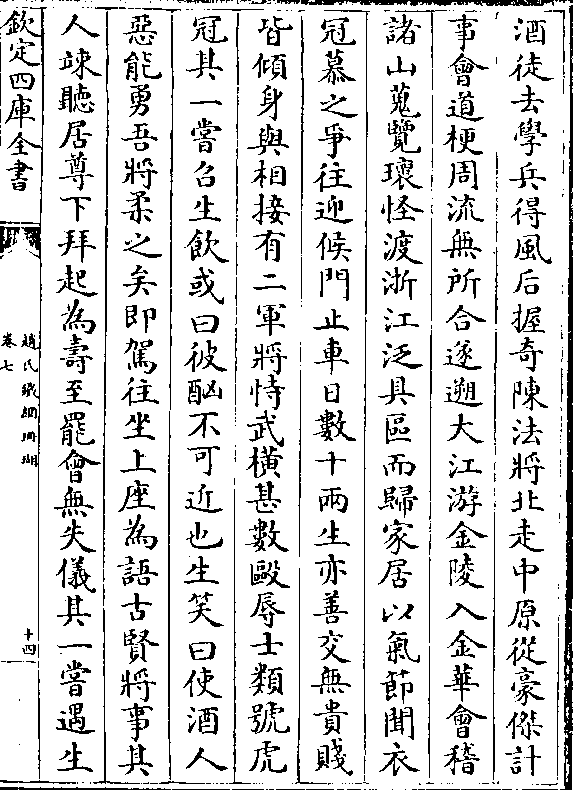 酒徒去學兵得風后握奇陳法將北走中原從豪傑計
事會道梗周流無所合遂遡大江游金陵入金華會稽
諸山蒐覽瓌怪渡浙江泛具區而歸家居以氣節聞衣
冠慕之爭往迎候門止車日數十兩生亦善交無貴賤
皆傾身與相接有二軍將恃武橫甚數毆辱士類號虎
冠其一嘗召生飲或曰彼酗不可近也生笑曰使酒人
惡能勇吾將柔之矣即駕往坐上座為語古賢將事其
人竦聽居尊下拜起為壽至罷會無失儀其一嘗遇生
欽定四庫全書
趙氏鐵網珊瑚
卷七
十四